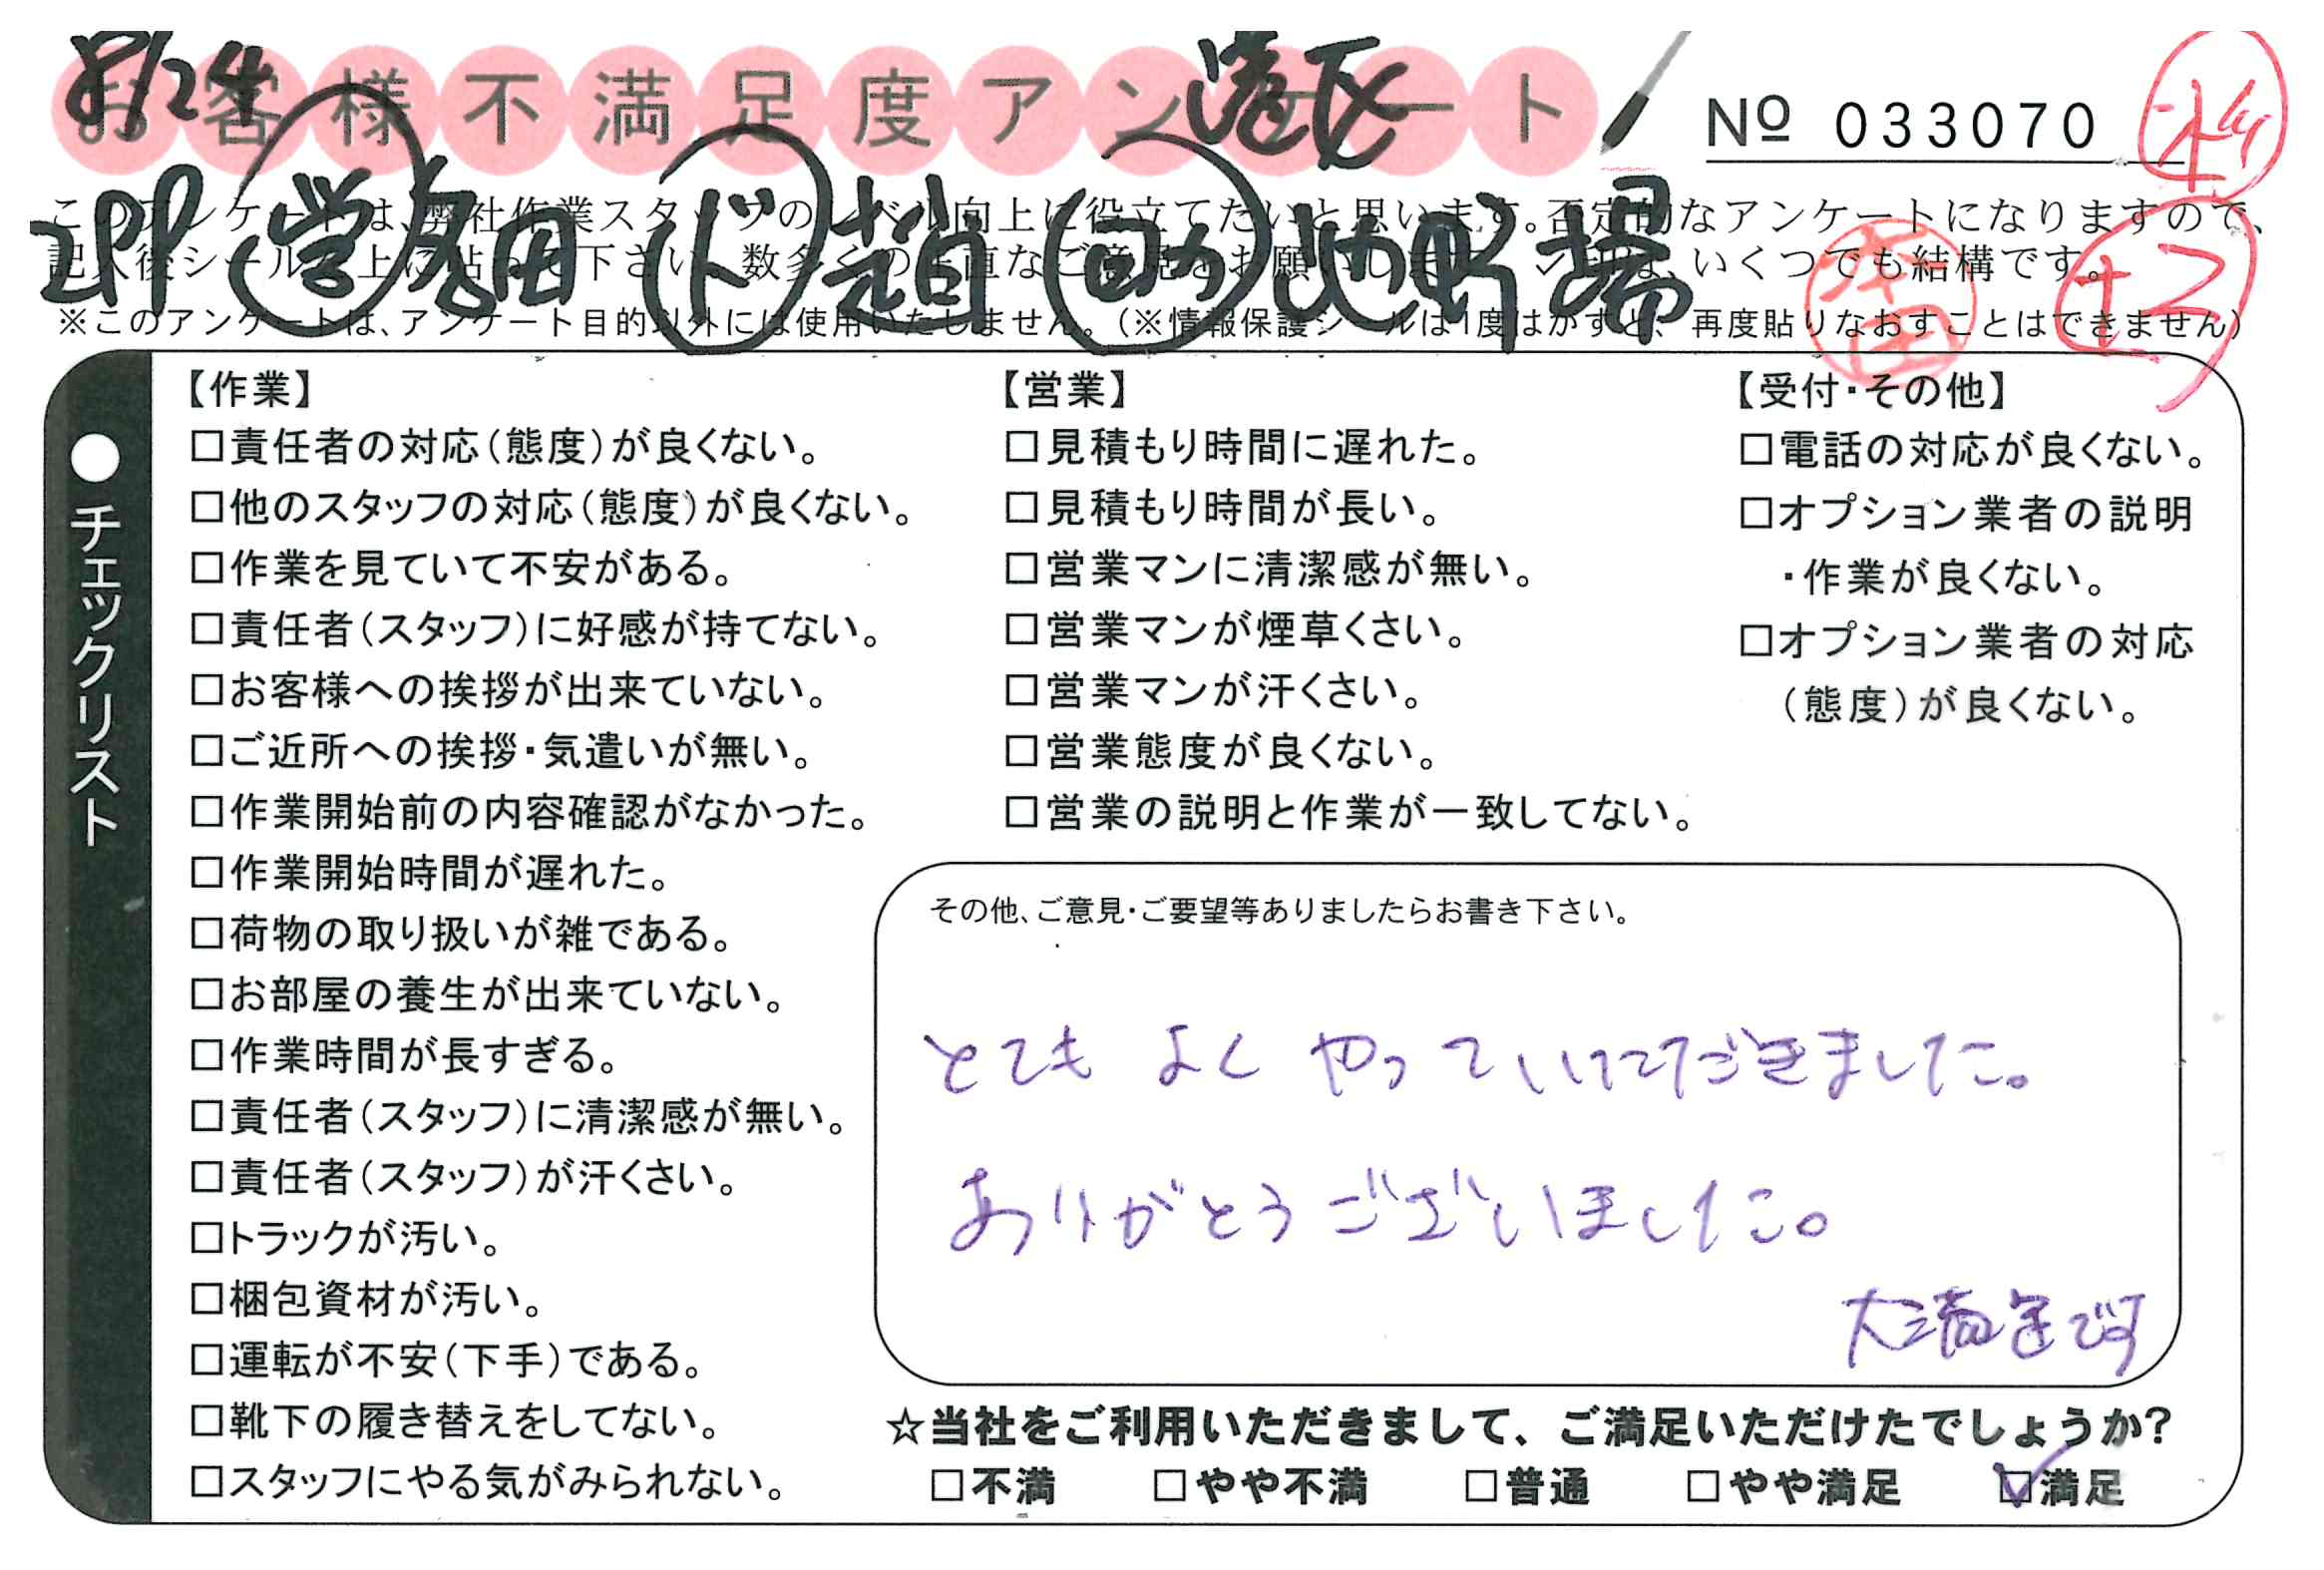 8/24
お客様不満足度アンケート
港区
№ 033070
営 多田 ド 趙 助 池野 場
このアンケートは、弊社作業スタッフのレベル向上に役立てたいと思います。否定的なアンケートになりますので、
記入後シールを上に貼って下さい。数多くの正直なご意見をお願いします。
いくつでも結構です。
+2
※このアンケートは、アンケート目的以外には使用いたしません。（※情報保護シールは1度はがすと、再度貼りなおすことはできません）
●チェックリスト
【作業】
□責任者の対応（態度）が良くない。
□他のスタッフの対応（態度）が良くない。
□作業を見ていて不安がある。
□責任者（スタッフ）に好感が持てない。
□お客様への挨拶が出来ていない。
□ご近所への挨拶・気遣いが無い。
□作業開始前の内容確認がなかった。
□作業開始時間が遅れた。
□荷物の取り扱いが雑である。
□お部屋の養生が出来ていない。
□作業時間が長すぎる。
□責任者（スタッフ）に清潔感が無い。
□責任者（スタッフ）が汗くさい。
□トラックが汚い。
□梱包資材が汚い。
□運転が不安（下手）である。
□靴下の履き替えをしてない。
□スタッフにやる気がみられない。
【営業】
□見積もり時間に遅れた。
□見積もり時間が長い。
□営業マンに清潔感が無い。
□営業マンが煙草くさい。
□営業マンが汗くさい。
□営業態度が良くない。
□営業の説明と作業が一致してない。
【受付・その他】
□電話の対応が良くない。
□オプション業者の説明
・作業が良くない。
□オプション業者の対応
（態度）が良くない。
その他、ご意見・ご要望等ありましたらお書き下さい。
とても よく やっていただきました。
ありがとうございました。
大満足です
☆当社をご利用いただきまして、ご満足いただけたでしょうか?
□不満 □やや不満 □普通 □やや満足 ☑満足